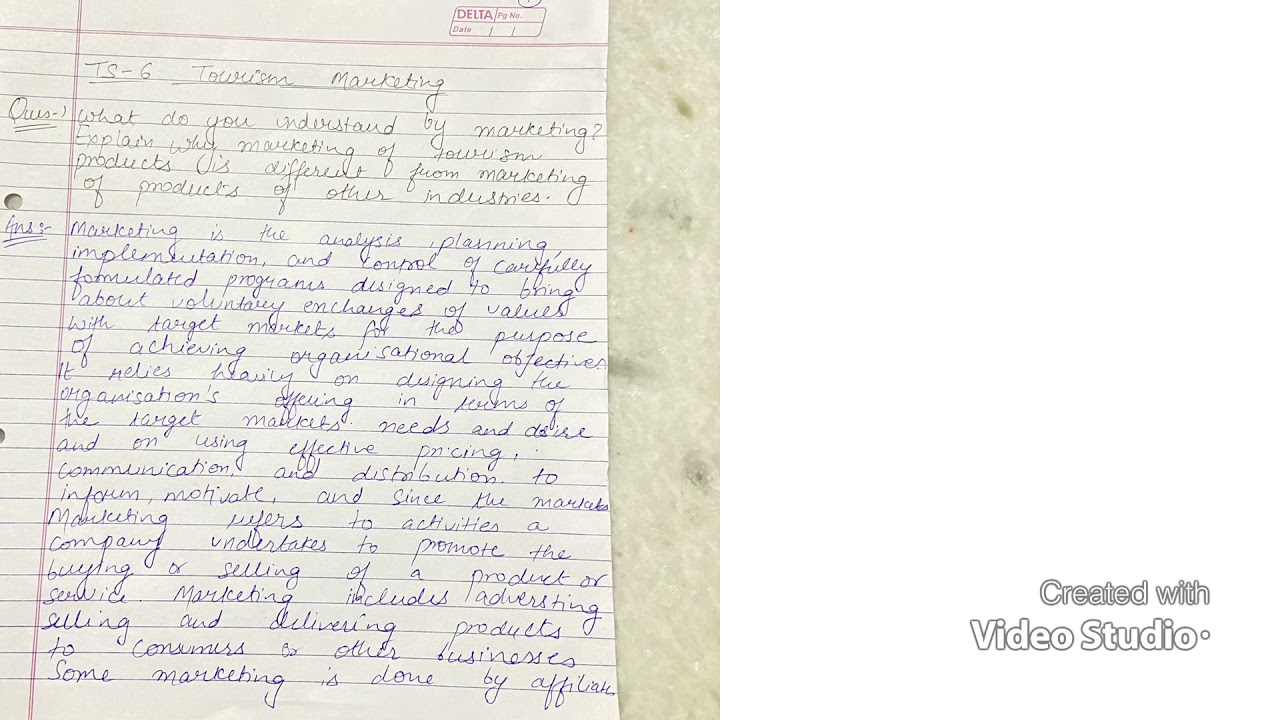 DELTA Pg No.
Date
TS-6 Tourism Marketing
Ques-) What do you understand by marketing?
Explain why marketing of tourism
products is different from marketing
of products of other industries.
Ans:- Marketing is the analysis, planning,
implementation, and control of carefully
formulated programs designed to bring
about voluntary exchanges of values
with target markets for the purpose
of achieving organisational objectives.
It relies heavily on designing the
organisation's offering in terms of
the target markets. needs and desire
and on using effective pricing,
communication, and distribution. to
inform, motivate, and since the markets
Marketing refers to activities a
company undertakes to promote the
buying or selling of a product or
service. Marketing includes adversting
selling and delivering products
to consumers or other businesses
Some marketing is done by affiliate
Created with
Video Studio